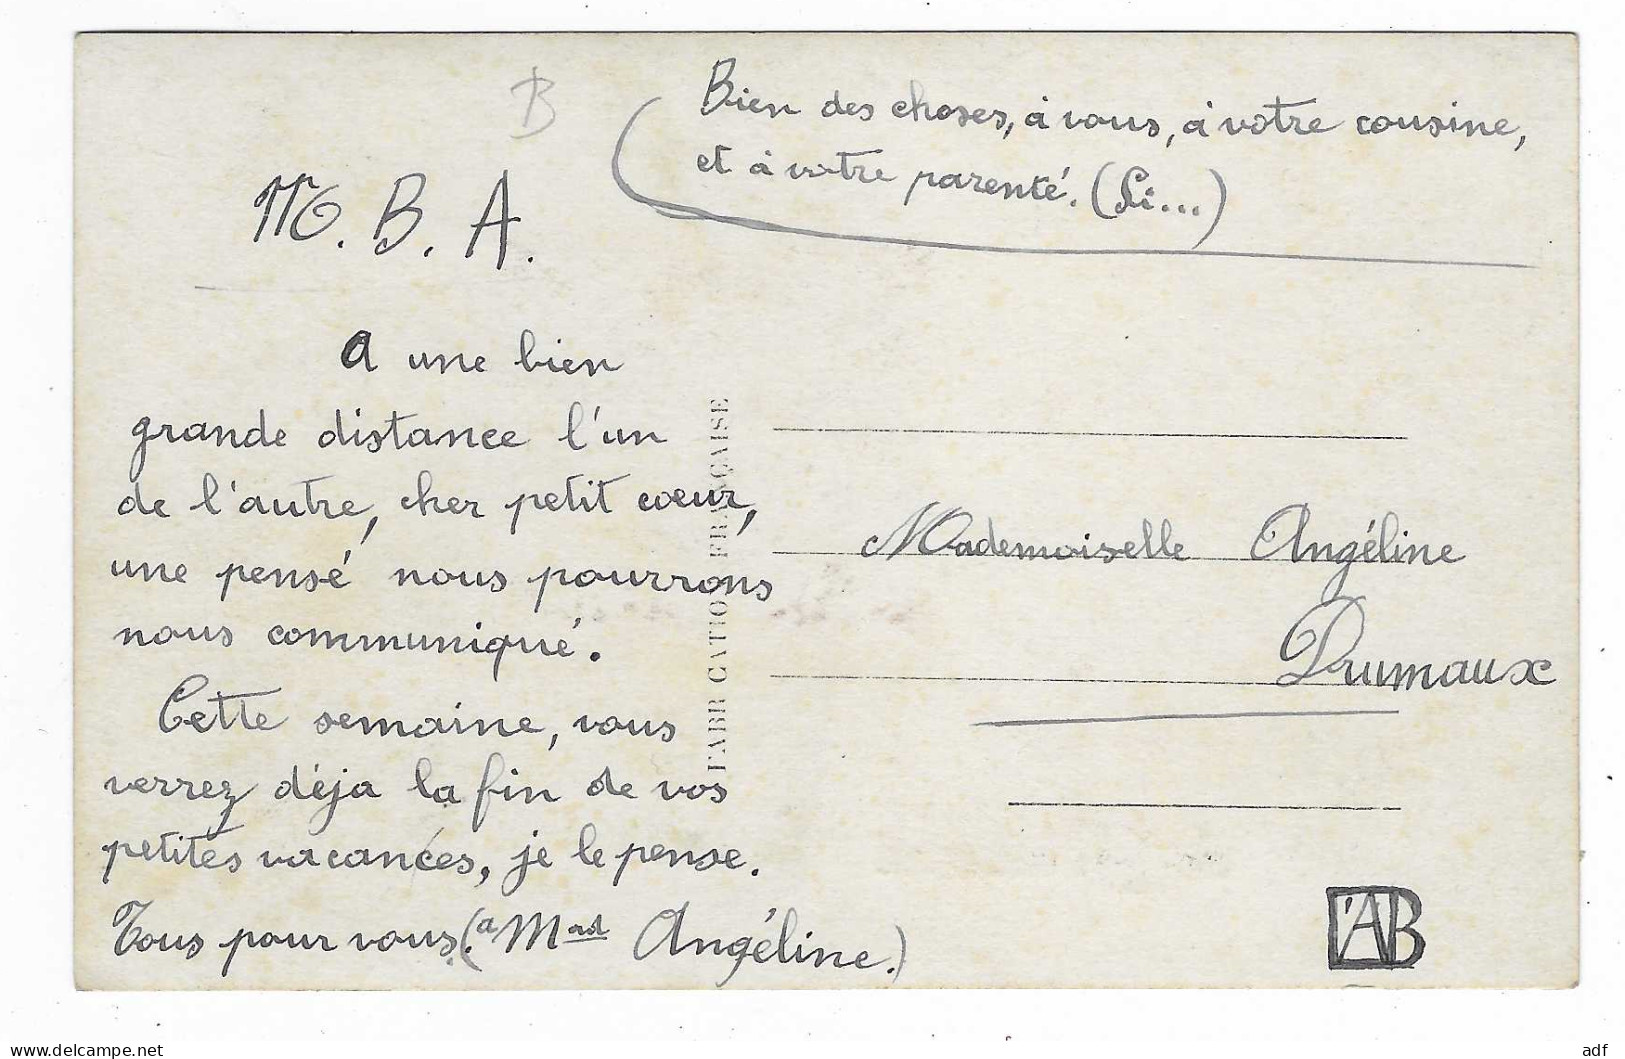 B
Bien des choses, à vous, à votre cousine,
et à votre parenté. (Si...)
M. B. A.
A une bien
grande distance l'un
de l'autre, cher petit cœur,
une pensé nous pourrons
nous communiqué.
Cette semaine, vous
verrez déja la fin de vos
petites vacances, je le pense.
Tous pour vous. (a Mad Angéline.)
FABRICATION FRANÇAISE
Mademoiselle Angéline
Drumaux
L'AB
www.delcampe.net
adf